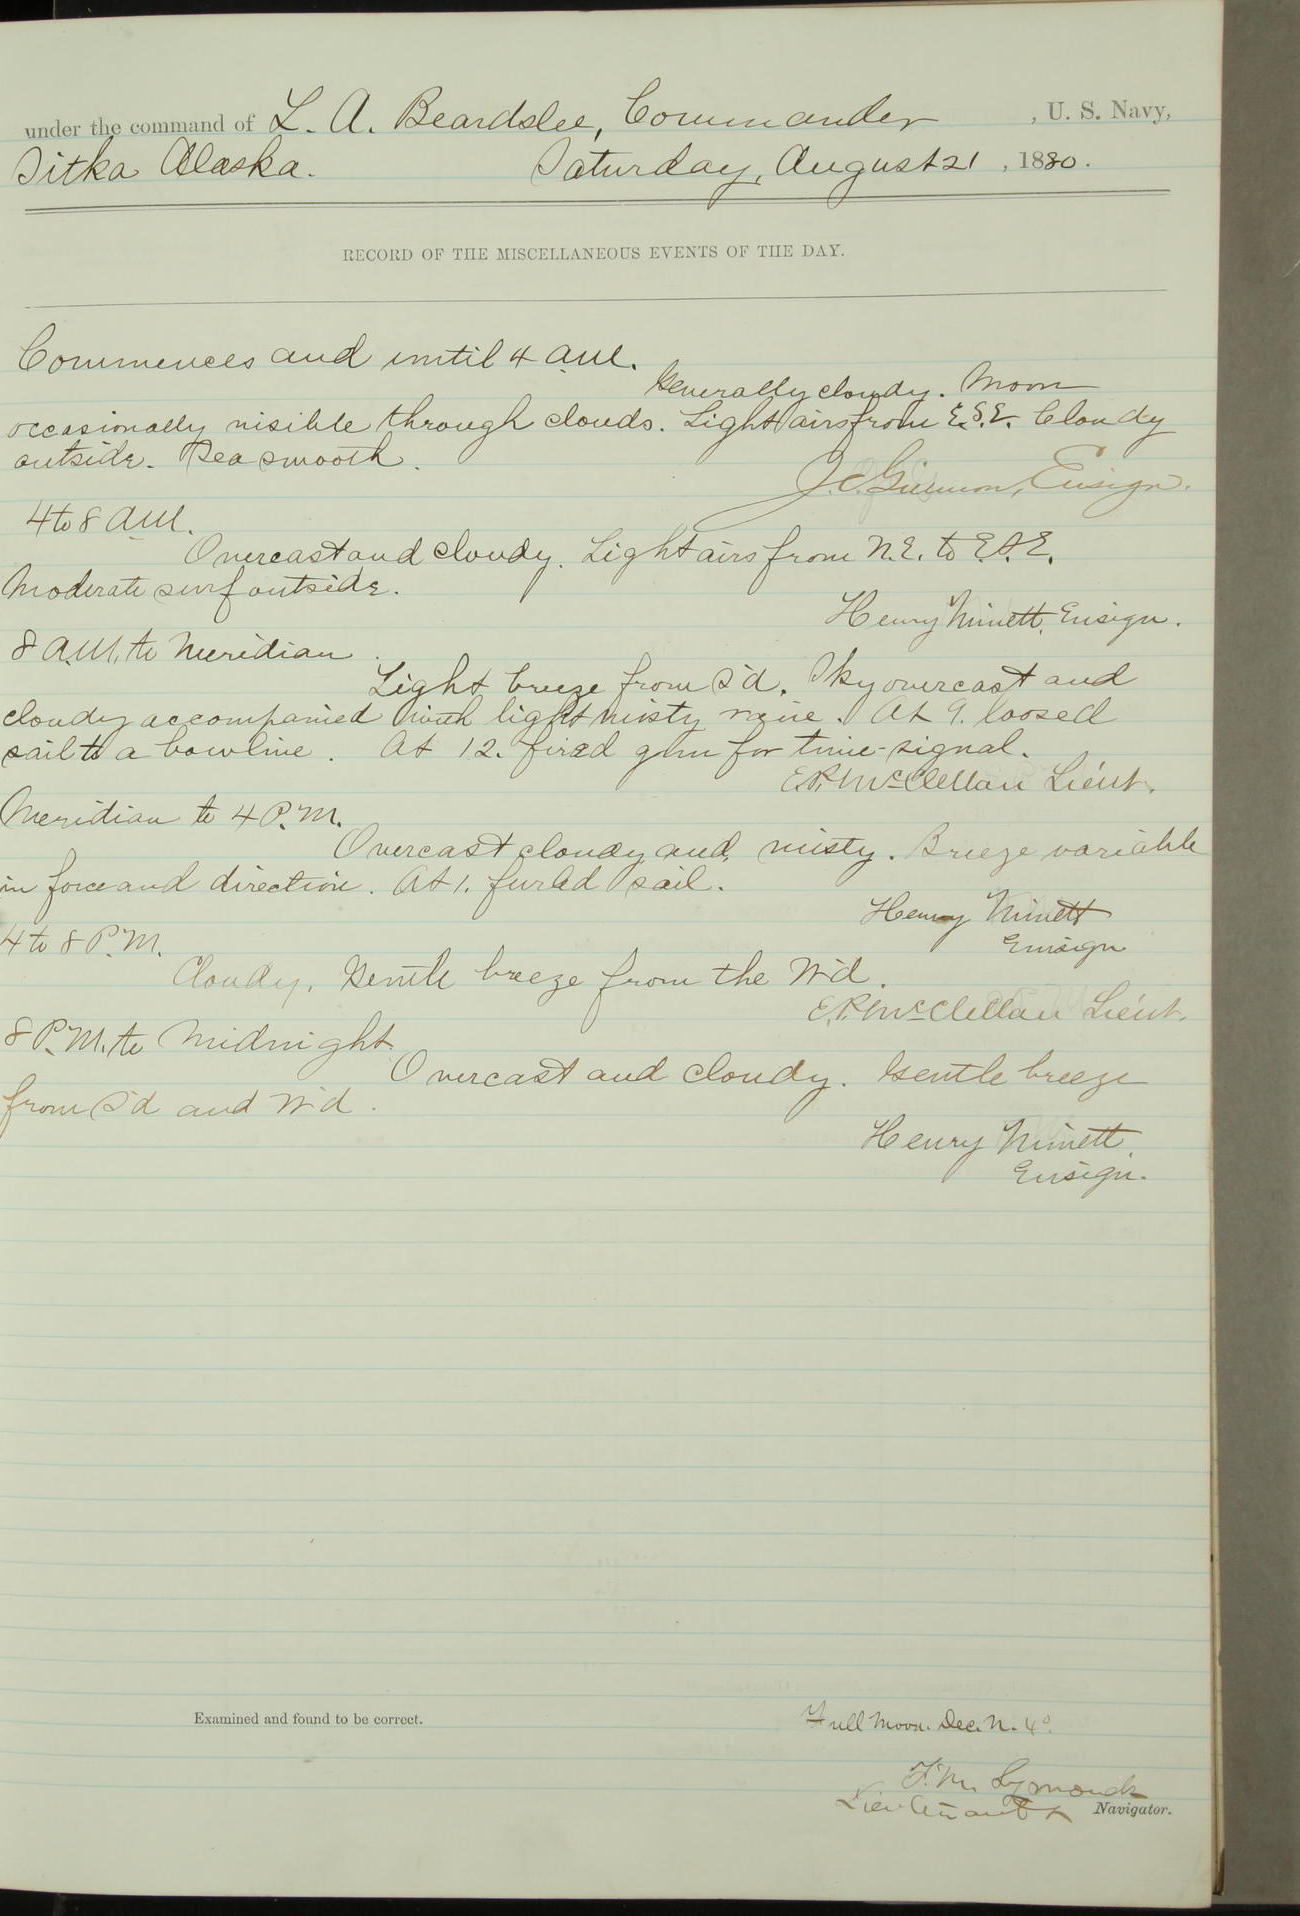 under the command of L. A. Beardslee, Commander, U. S. Navy,
Sitka Alaska. Saturday, August 21, 1880.
RECORD OF THE MISCELLANEOUS EVENTS OF THE DAY.
Commences and until 4 a.m.
Generally cloudy. Moon
occasionally visible through clouds. Light airs from E.S.E. Cloudy
outside. Sea smooth.
J. C. Ensign.
4 to 8 A.M.
Overcast and cloudy. Light airs from N.E. to E.S.E.
Moderate surf outside.
Henry Minett, Ensign.
8 A.M. to Meridian
Light breeze from S'd. Sky overcast and
cloudy accompanied with light misty rain. At 9. loosed
sail to a bowline. At 12. fired gun for time-signal.
E.P. McClellan Lieut.
Meridian to 4 P.M.
Overcast cloudy and misty. Breeze variable
in force and direction. At 1. furled sail.
Henry Minett
Ensign
4 to 8 P.M.
Cloudy. Gentle breeze from the W'd.
E.P. McClellan Lieut.
8 P.M. to Midnight
Overcast and cloudy. Gentle breeze
from S'd and W'd.
Henry Minett
Ensign.
Examined and found to be correct.
Full Moon. Dec. N. 4°.
F. M. Symonds
Lieutenant Navigator.